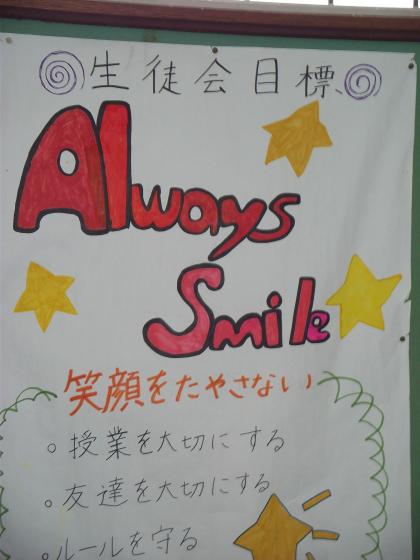 生徒会目標
Always
Smile
笑顔をたやさない
。授業を大切にする
。友達を大切にする
。ルールを守る